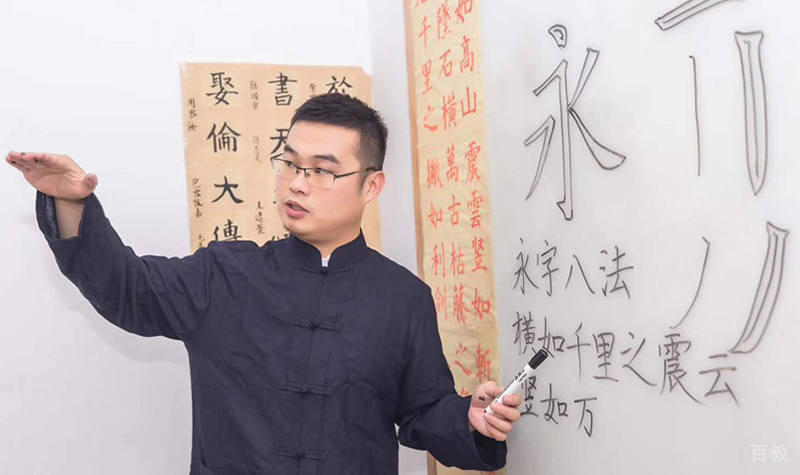 於
書天
娶倫大傳
如高山震雲竪如斬
墜石橫萬古枯藤之
千里之撇如利劍
永
永字八法
横如千里之震云
如万
百教